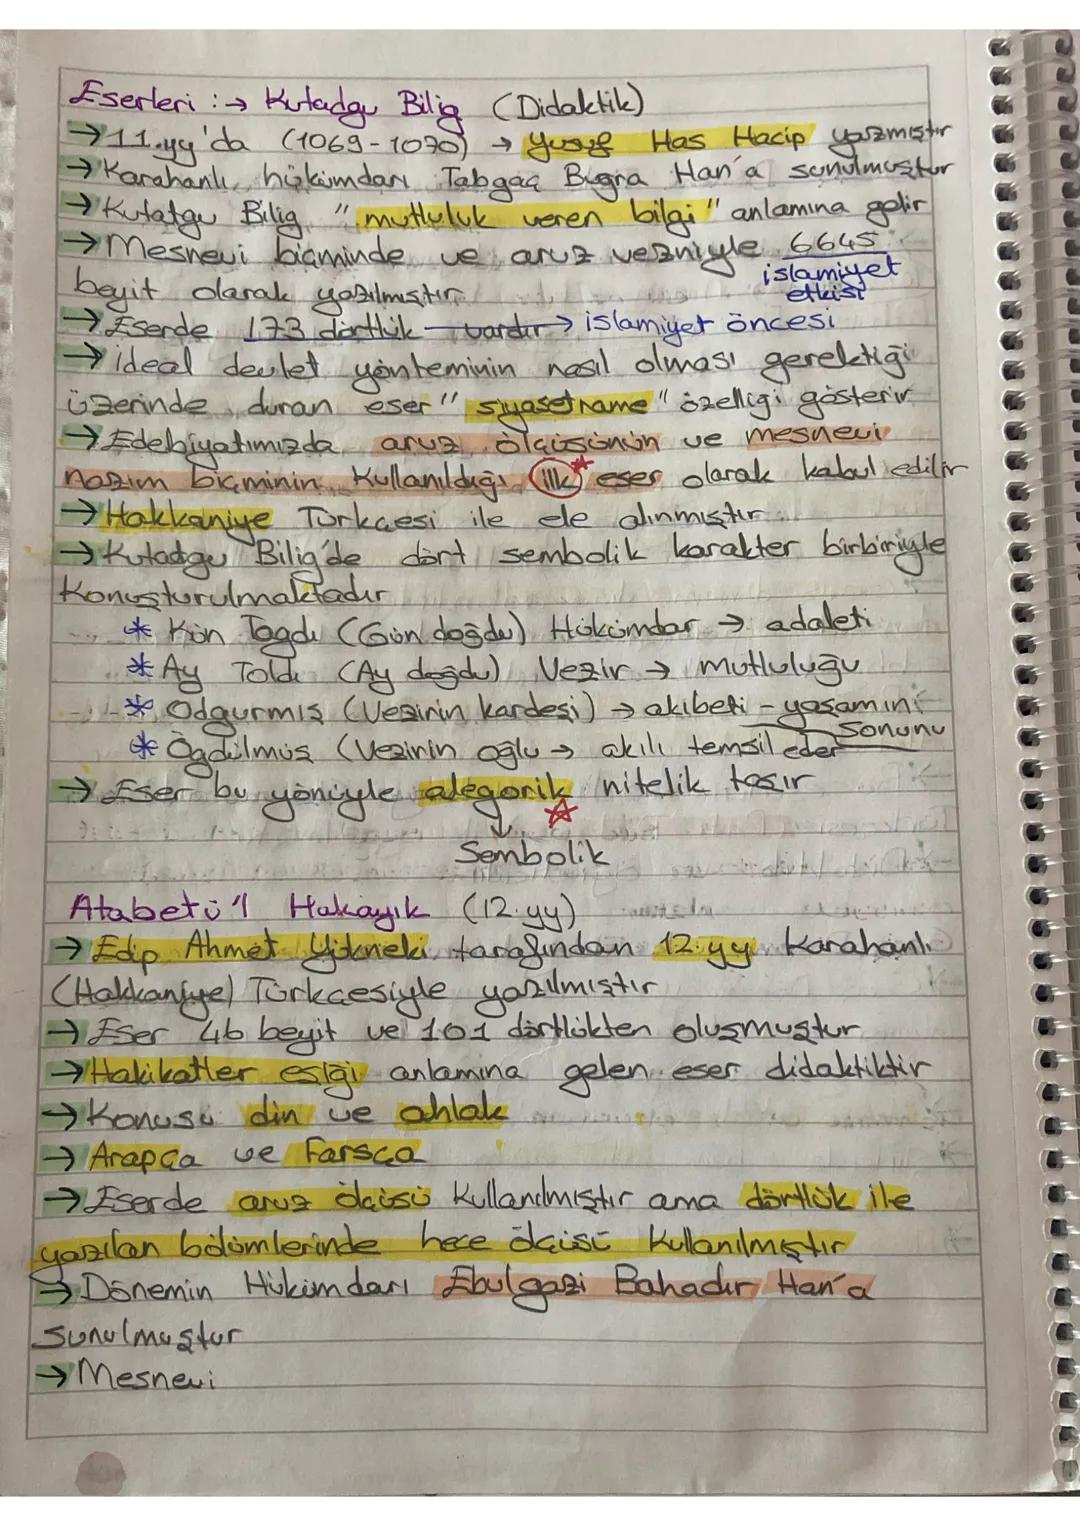 Eserleri :→ Kutadgu Bilig (Didaktik)
→ 11.yy'da (1069-1070) → Yusuf Has Hacip yazmıştır
→ Karahanlı hükümdarı Tabgaç Bugra Han'a sunulmuştur
→ Kutatgu Bilig "mutluluk veren bilgi" anlamına gelir
→ Mesnevi biçminde ve aruz vezniyle 6645
islamiyet
etkisi
beyit olarak yazılmıştır
→ Eserde 173 dörtlük — vardır → islamiyet öncesi
→ ideal devlet yönteminin nasıl olması gerektiği
üzerinde duran eser "siyasetname" özelliği gösterir
→ Edebiyatımızda aruz ölçüsünün ve mesnevi
nazım biçminin Kullanıldığı ilk eser olarak kabul edilir
→ Hakkaniye Türkçesi ile ele alınmıştır
→ Kutadgu Bilig'de dört sembolik karakter birbiriyle
Konuşturulmaktadır
* Kün Togdı (Gün doğdu) Hükümdar → adaleti
* Ay Toldı (Ay doğdu) Vezir → mutluluğu
* Odgurmış (Vezirin kardeşi) → akıbeti - yaşamın
sonunu
* Ögdülmüş (Vezirin oğlu → aklı temsil eder
→ Eser bu yönüyle alegorik nitelik taşır
↓
Sembolik
Atabetü'l Hakayık (12.yy)
→ Edip Ahmet Yükneki tarafından 12.yy Karahanlı
(Hakkaniye) Türkçesiyle yazılmıştır
→ Eser 46 beyit ve 101 dörtlükten oluşmuştur
→ Hakikatler eşiği anlamına gelen eser didaktiktir
→ Konusu din ve ahlak
→ Arapça ve Farsça
→ Eserde aruz ölçüsü Kullanılmıştır ama dörtlük ile
yazılan bölümlerinde hece ölçüsü Kullanılmıştır
→ Dönemin Hükümdarı Ebulgazi Bahadır Han'a
sunulmuştur
→ Mesnevi